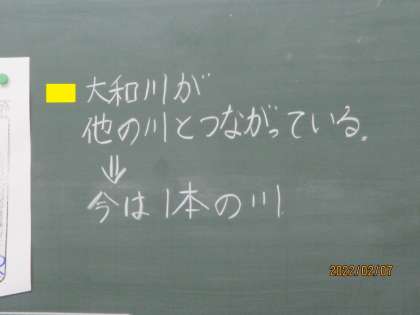 大和川が
他の川とつながっている。
⇓
今は1本の川
2022/02/07